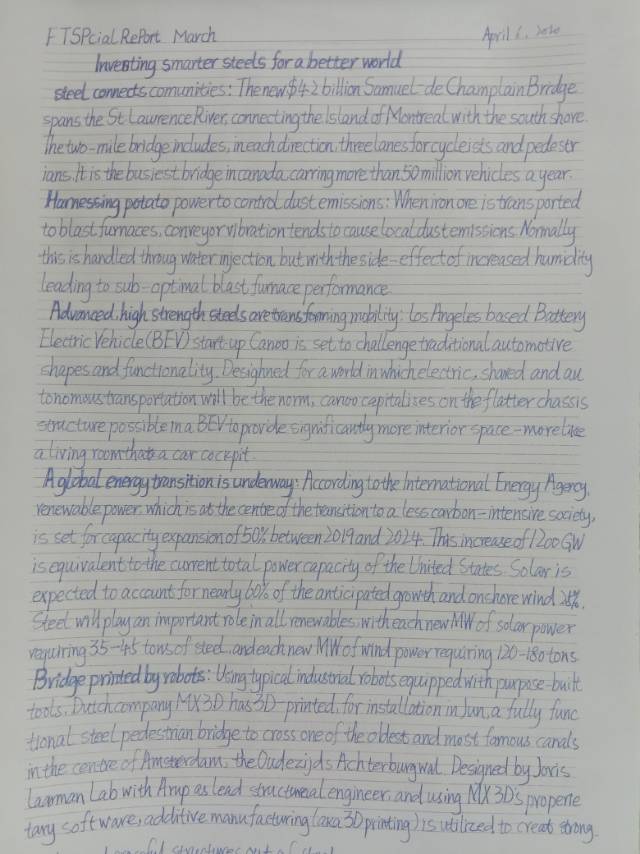 FTSPcial RePort March April 6, 2020
Investing smarter steels for a better world
steel connects comunities: The new $4.2 billion Samuel-de Champlain Bridge
spans the St Lawrence River, connecting the Island of Montreal with the south shore.
The two-mile bridge includes, in each direction, three lanes for cycleists and pedestr
ians. It is the busiest bridge in canada, carring more than 50 million vehicles a year.
Harnessing potato power to control dust emissions: When iron ore is transported
to blast furnaces, conveyor vibration tends to cause local dust emissions. Normally
this is handled throug water injection, but with the side-effect of increased humidity
leading to sub-optimal blast furnace performance
Advanced, high strength steels are transforming mobility: Los Angeles based Battery
Electric Vehicle (BEV) start-up Canoo is set to challenge traditional automotive
shapes and functionality. Desighned for a world in which electric, shared and au
tonomous transportation will be the norm, canoo capitalises on the flatter chassis
structure possible in a BEV to provide significantly more interior space - more like
a living room that a car cockpit.
A global energy transition is underway: According to the International Energy Agency,
renewable power, which is at the centre of the transition to a less carbon-intensive society,
is set for capacity expansion of 50% between 2019 and 2024. This increase of 1200 GW
is equivalent to the current total power capacity of the United States. Solar is
expected to account for nearly 60% of the anticipated growth and onshore wind
Steel will play an important role in all renewables, with each new MW of solar power
requiring 35-45 tons of steel, and each new MW of wind power requiring 120-180 tons
Bridge printed by robots: Using typical industrial robots equipped with purpose-built
tools, Dutch company MX3D has 3D-printed, for installation in Jun, a fully func
tional steel pedestrian bridge to cross one of the oldest and most famous canals
in the centre of Amsterdam, the Oudezijds Achterburgwal. Designed by Joris
Laarman Lab with Arup as lead structural engineer, and using MX3D's properie
tary software, additive manufacturing (aka 3D printing) is utilized to creat strong
graceful structures out of steel